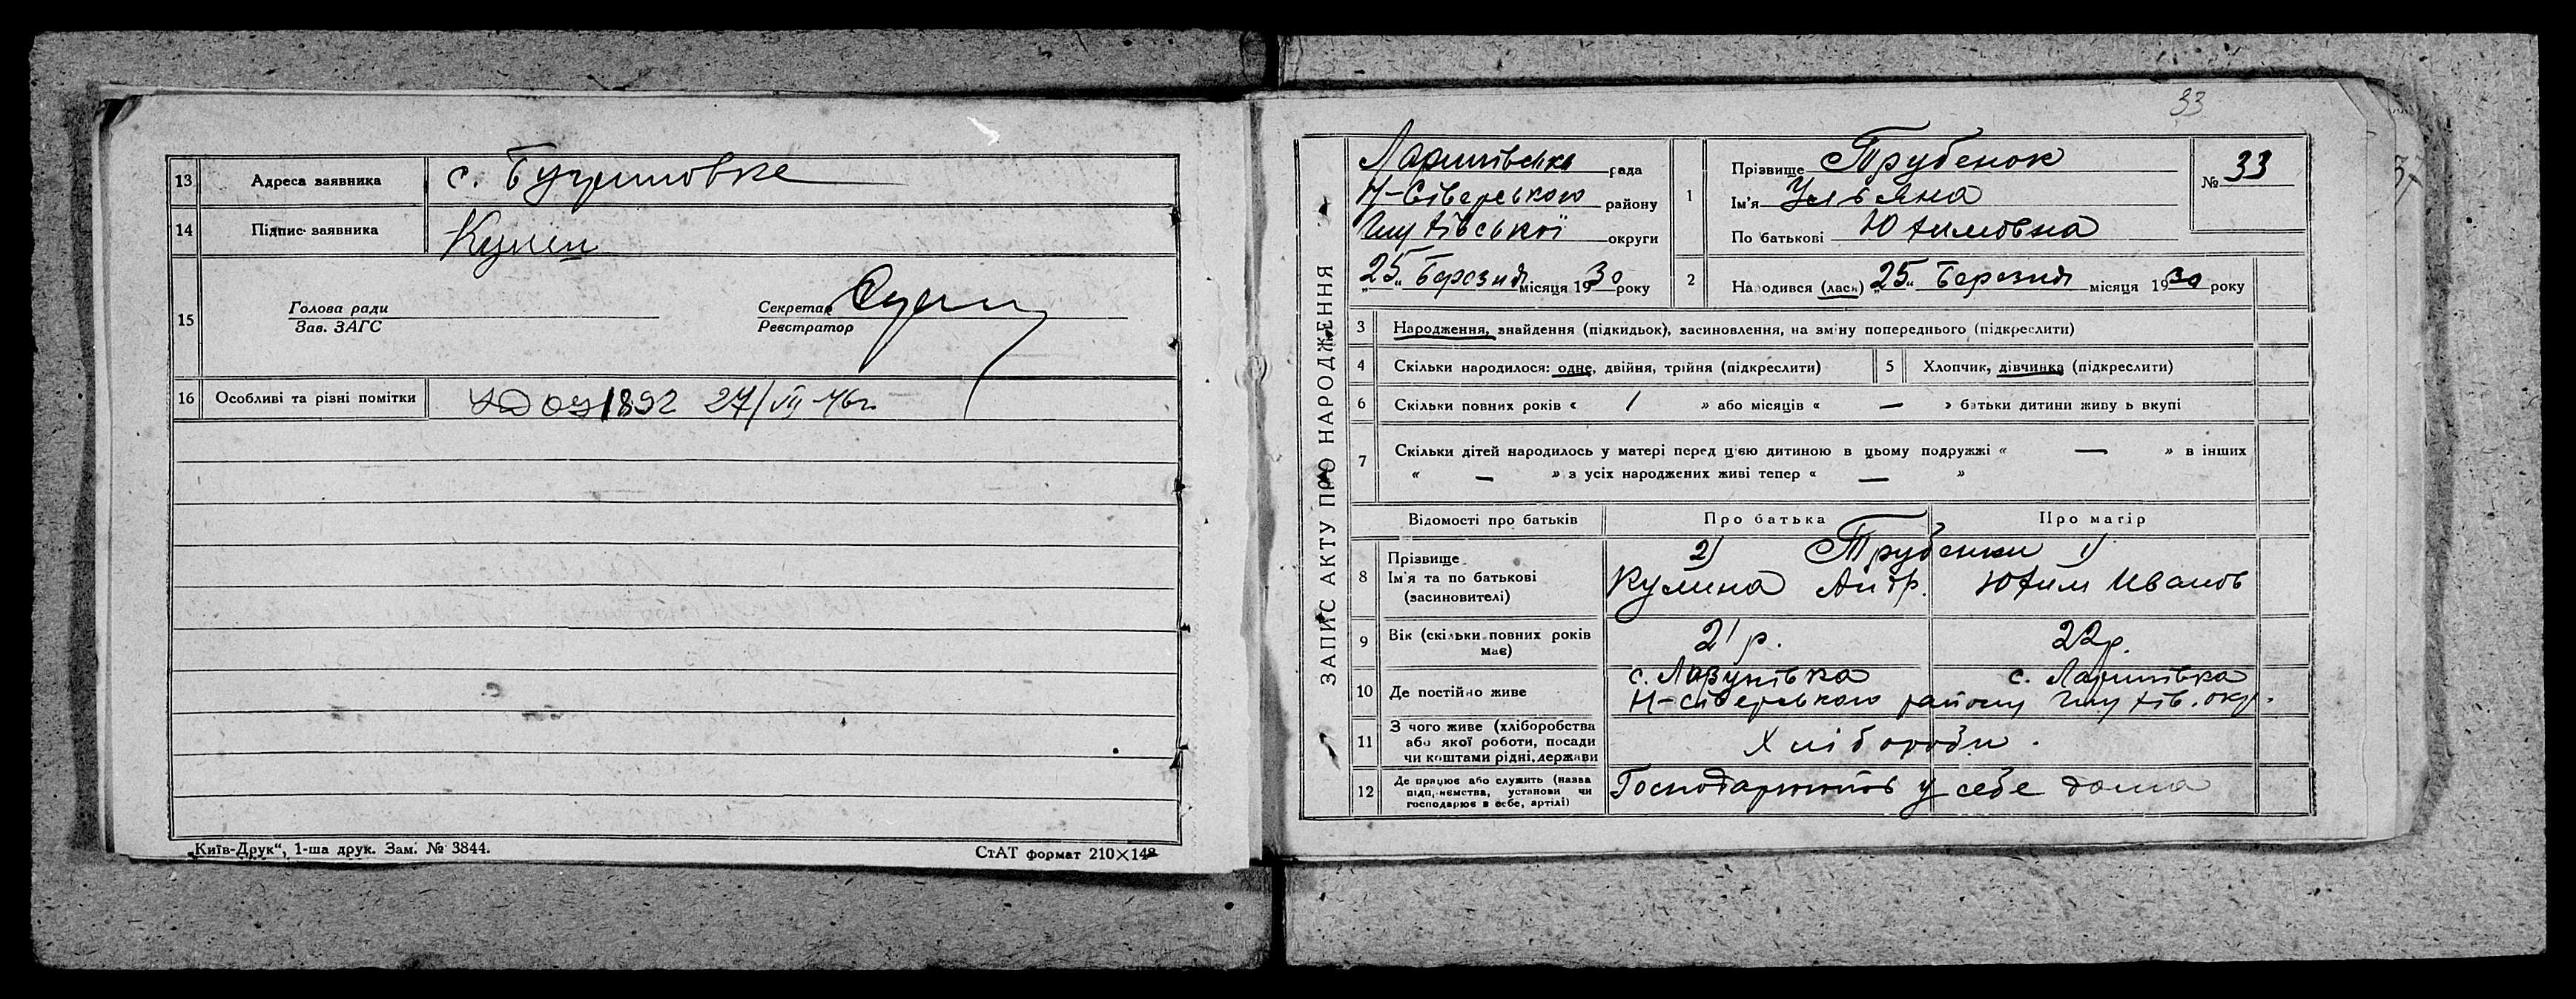 13 Адреса заявника с.
14 Підпис заявника
15 Голова ради
Зав. ЗАГС
Секретар
Реєстратор
16 Особливі та різні помітки 1892 27/VII 46г.
„Київ-Друк“, 1-ша друк. Зам. № 3844.
СтАТ формат 210×148
33
ЗАПИС АКТУ ПРО НАРОДЖЕННЯ
Ларинівська рада
Н-Сіверського району
Глухівської округи
„25“ Березня місяця 1930 року
1 Прізвище Трубенок
Ім'я Ульяна
По батькові Юхимовна
№ 33
2 Народився (лась) „25“ Березня місяця 1930 року
3 Народження, знайдення (підкидьок), засиновлення, на зміну попереднього (підкреслити)
4 Скільки народилося: одне, двійня, трійня (підкреслити)
5 Хлопчик, дівчинка (підкреслити)
6 Скільки повних років « 1 » або місяців « — » батьки дитини живуть вкупі
7 Скільки дітей народилось у матері перед цією дитиною в цьому подружжі « — » в інших
« — » з усіх народжених живі тепер « — »
Відомості про батьків Про батька Про матір
8 Прізвище
Ім'я та по батькові
(засновителі)
2) Трубенки 1)
Кулина Андр. Юхим Иванов
9 Вік (скільки повних років має) 21 р. 22 р.
10 Де постійно живе с. с. Ларинівка
Н-Сіверського району Глухів. окр.
11 З чого живе (хліборобства
або якої роботи, посади
чи коштами рідні, держави
Хлібороби.
12 Де працює або служить (назва
підприємства, установи чи
господарює в себе, артілі)
Господарюють у себе дома